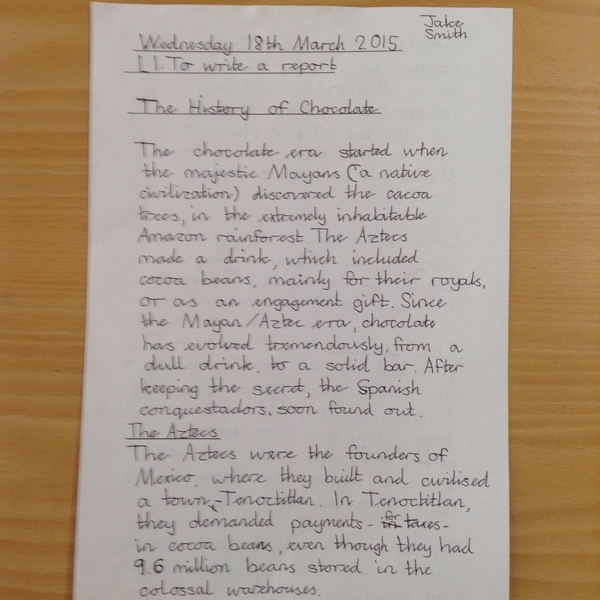 Jake
Smith
Wednesday 18th March 2015
L I: To write a report
The History of Chocolate
The chocolate era started when
the majestic Mayans (a native
civilization) discovered the cacoa
trees, in the extremely inhabitable
Amazon rainforest. The Aztecs
made a drink, which included
cocoa beans, mainly for their royals,
or as an engagement gift. Since
the Mayan/Aztec era, chocolate
has evolved tremendously, from a
dull drink, to a solid bar. After
keeping the secret, the Spanish
conquestadors, soon found out.
The Aztecs
The Aztecs were the founders of
Mexico, where they built and civilised
a town - Tenoctitlan. In Tenoctitlan,
they demanded payments - for taxes -
in cocoa beans, even though they had
9.6 million beans stored in the
colossal warehouses.